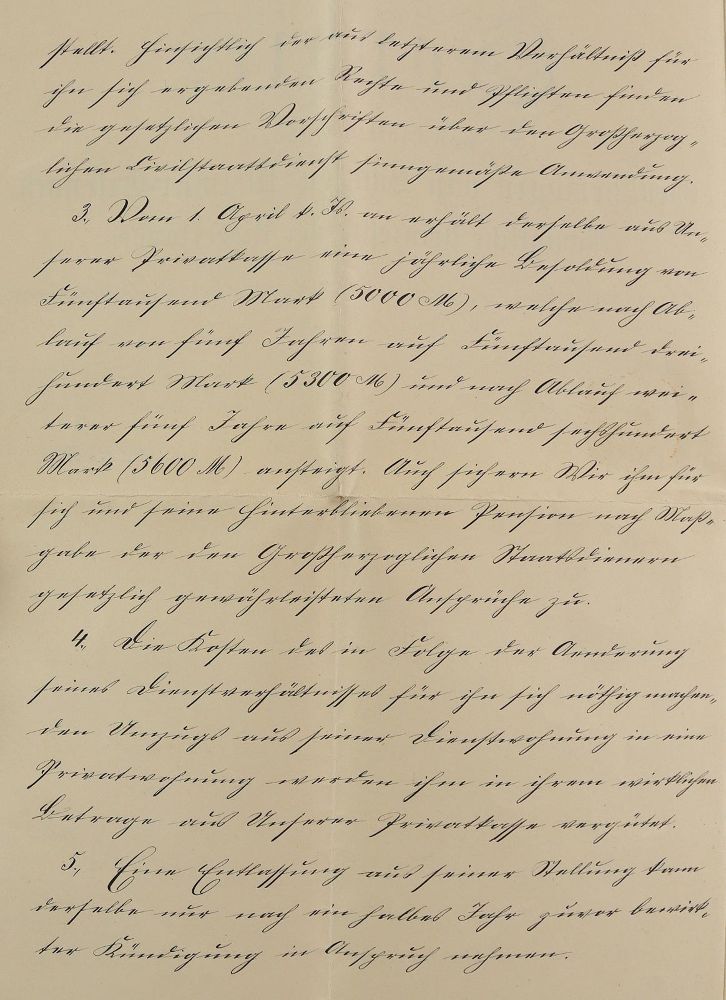 stellt. Hinsichtlich der aus letzterem Verhältniß für
ihn sich ergebenden Rechte und Pflichten finden
die gesetzlichen Vorschriften über den Großherzog-
lichen Civilstaatsdienst sinngemäße Anwendung.
3., Vom 1. April k. Js. an erhält derselbe aus Un-
serer Privatkasse eine jährliche Besoldung von
Fünftausend Mark (5000 M), welche nach Ab-
lauf von fünf Jahren auf Fünftausend drei-
hundert Mark (5300 M) und nach Ablauf wei-
terer fünf Jahre auf Fünftausend sechshundert
Mark (5600 M) ansteigt. Auch sichern Wir ihm für
sich und seine Hinterbliebenen Pension nach Maß-
gabe der den Großherzoglichen Staatsdienern
gesetzlich gewährleisteten Ansprüche zu.
4., Die Kosten des in Folge der Aenderung
seines Dienstverhältnisses für ihn sich nöthig machen-
den Umzugs aus seiner Dienstwohnung in eine
Privatwohnung werden ihm in ihrem wirklichen
Betrage aus Unserer Privatkasse vergütet.
5., Eine Entlassung aus seiner Stellung kann
derselbe nur nach ein halbes Jahr zuvor bewirk-
ter Kündigung in Anspruch nehmen.